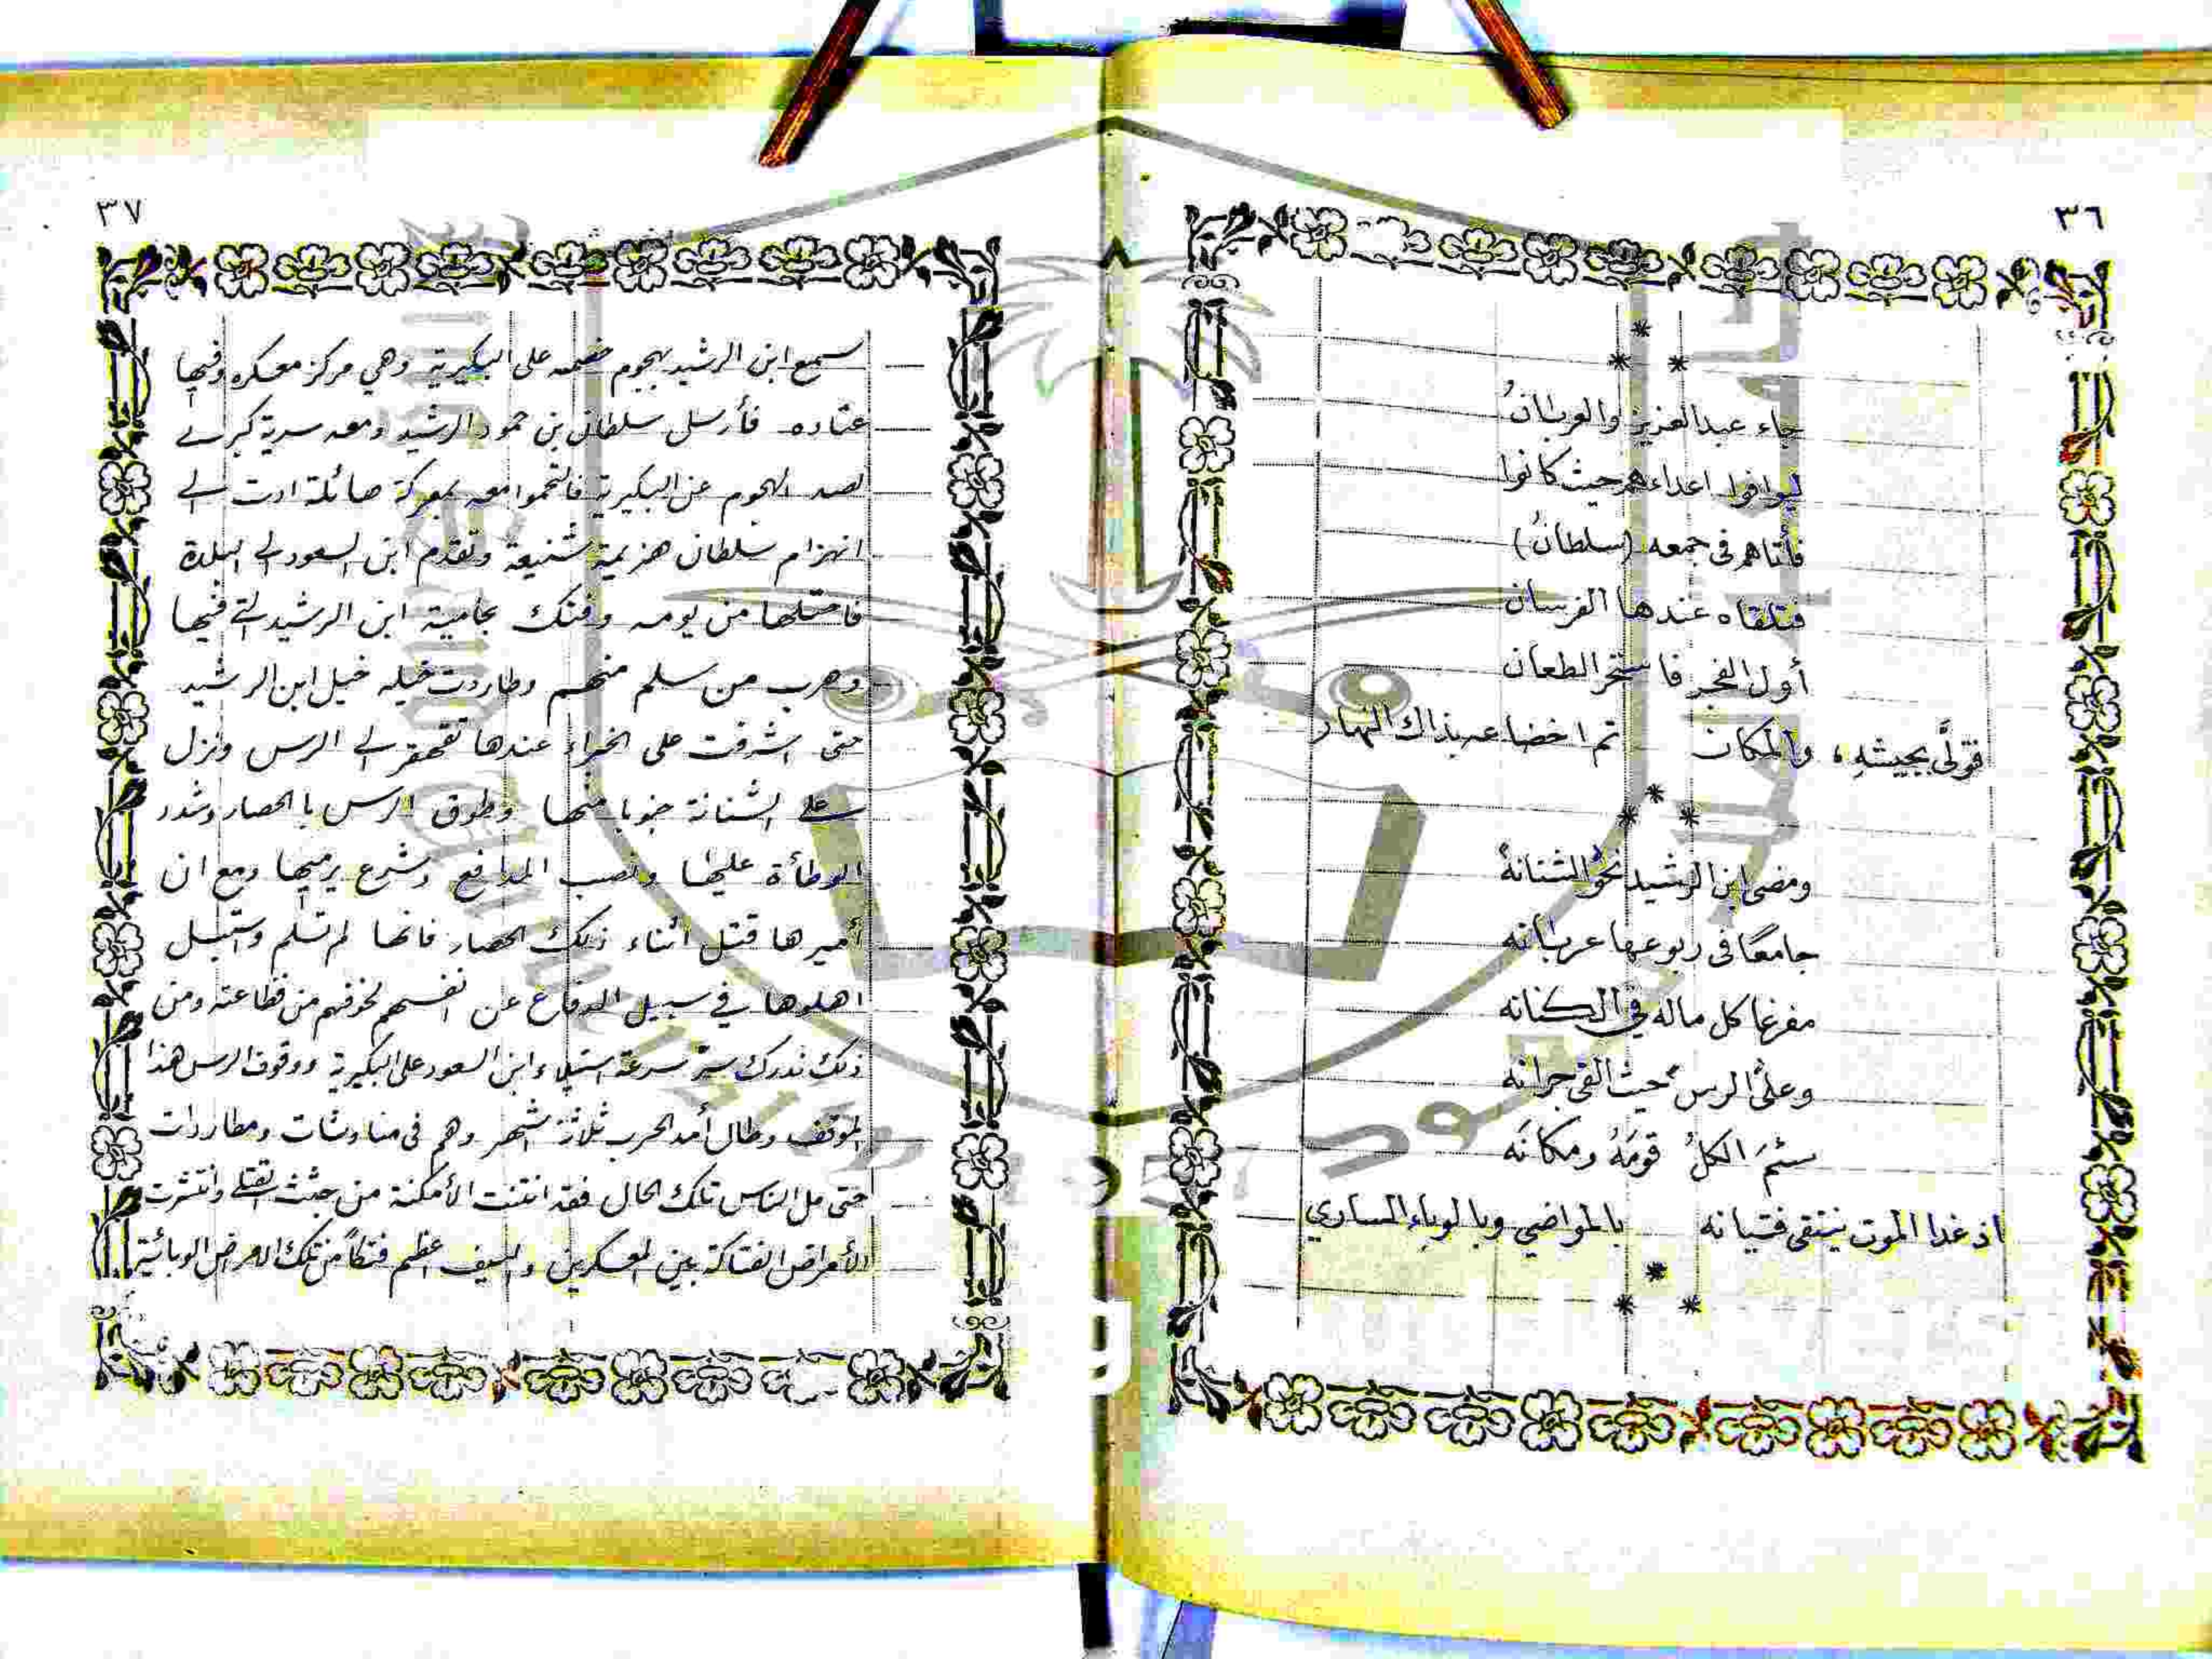 ٣٦
* * *
جاء عبدالعزيز والعربانُ
ليوافوا اعداءهم حيث كانوا
فأتاهم فى جمعه (سلطانُ)
فتلقاه عندها الفرسان
أول الفجر فاستحر الطعان
فتولَّى بجيشهِ، والمكان تم اخضاعه بذاك النهار
* * *
ومضى ابن الرشيد نحو الشنانهْ
جامعًا فى ربوعها عربانه
مفرغا كل ماله في الكنانه
وعلى الرس حيث القى جرانه
سئمَ الكلُ قومَهُ ومكانَه
اذ غدا الموت ينتقى فتيانه بالمواضي وبالوباء الساري
* * *
٣٧
سمع ابن الرشيد بهجوم خصمه على البكيرية وهي مركز معسكره وفيها
عتاده فأرسل سلطان بن حمود الرشيد ومعه سرية كبرى
لصد الهجوم عن البكيرية فالتحموا معه بمعركة هائلة ادت الى
انهزام سلطان هزيمة شنيعة وتقدم ابن السعود الى البلدة
فاحتلها من يومه وفتك بحامية ابن الرشيد التي فيها
وهرب من سلم منهم وطاردت خيله خيل ابن الرشيد
حتى اشرفت على الخبراء عندها تقهقر الى الرس ونزل
على الشنانة جنوبا منها وطوق الرس بالحصار وشدد
الوطأة عليها ونصب المدافع وشرع يرميها ومع ان
أميرها قتل اثناء ذلك الحصار فانها لم تسلم واستبسل
اهلوها في سبيل الدفاع عن انفسهم لخوفهم من فظاعته ومن
ذلك ندرك سر سرعة استيلاء ابن السعود على البكيرية ووقوف الرس هذا
الموقف وطال أمد الحرب ثلاثة اشهر وهم فى مناوشات ومطاردات
حتى مل الناس تلك الحال فقد انتنت الأمكنة من جثث القتلى وانتشرت
الأمراض الفتاكة بين المعسكرين والسيف اعظم فتكاً من تلك الامراض الوبائية